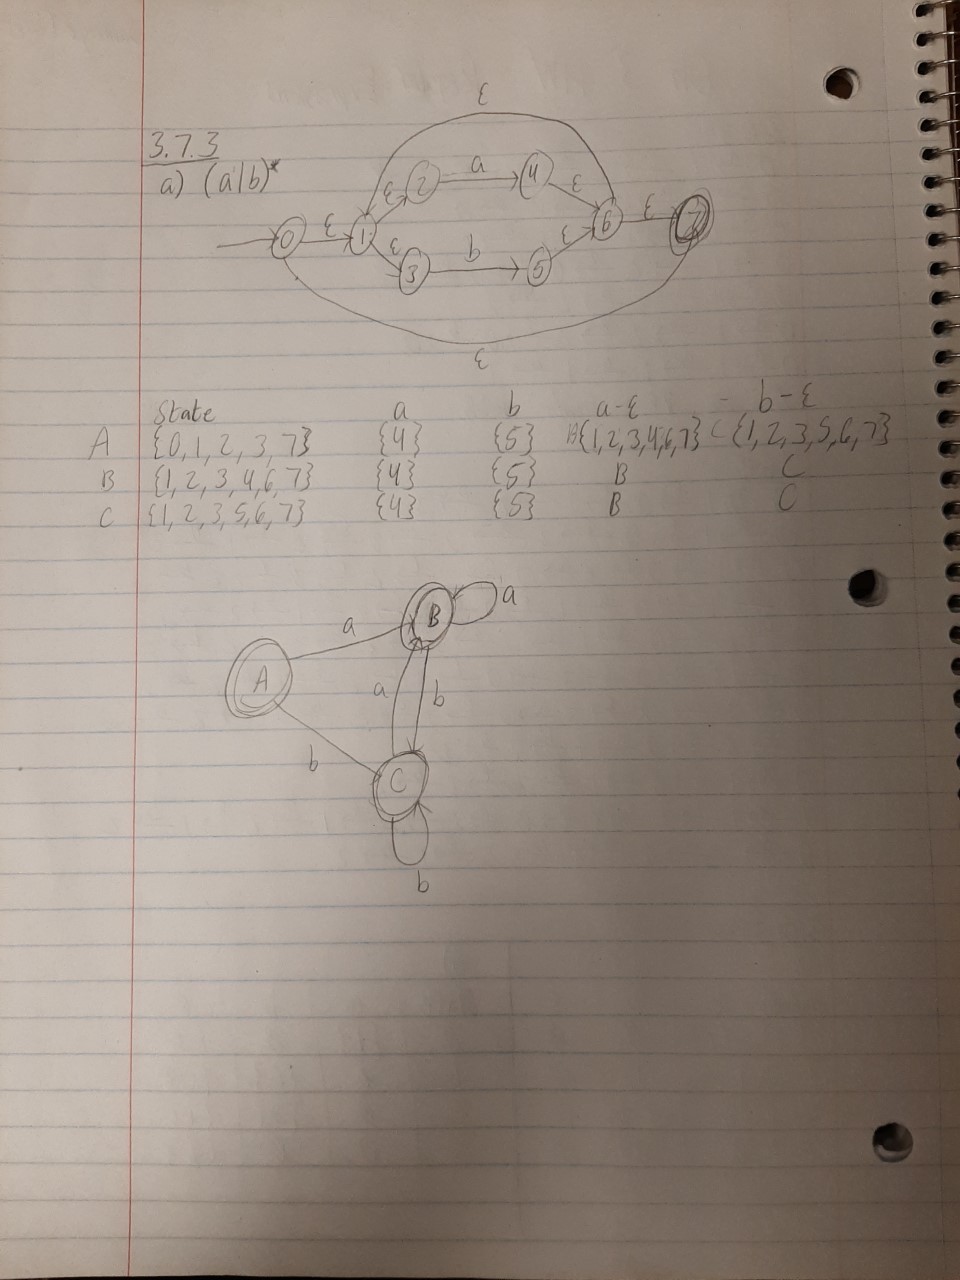 3.7.3
a) (a|b)*
ε
2 a 4
ε ε
0 ε 1 6 ε 7
ε ε
3 b 5
ε
State a b a-ε b-ε
A {0,1,2,3,7} {4} {5} B{1,2,3,4,6,7} C{1,2,3,5,6,7}
B {1,2,3,4,6,7} {4} {5} B C
C {1,2,3,5,6,7} {4} {5} B C
B a
a
A
a b
b C
b